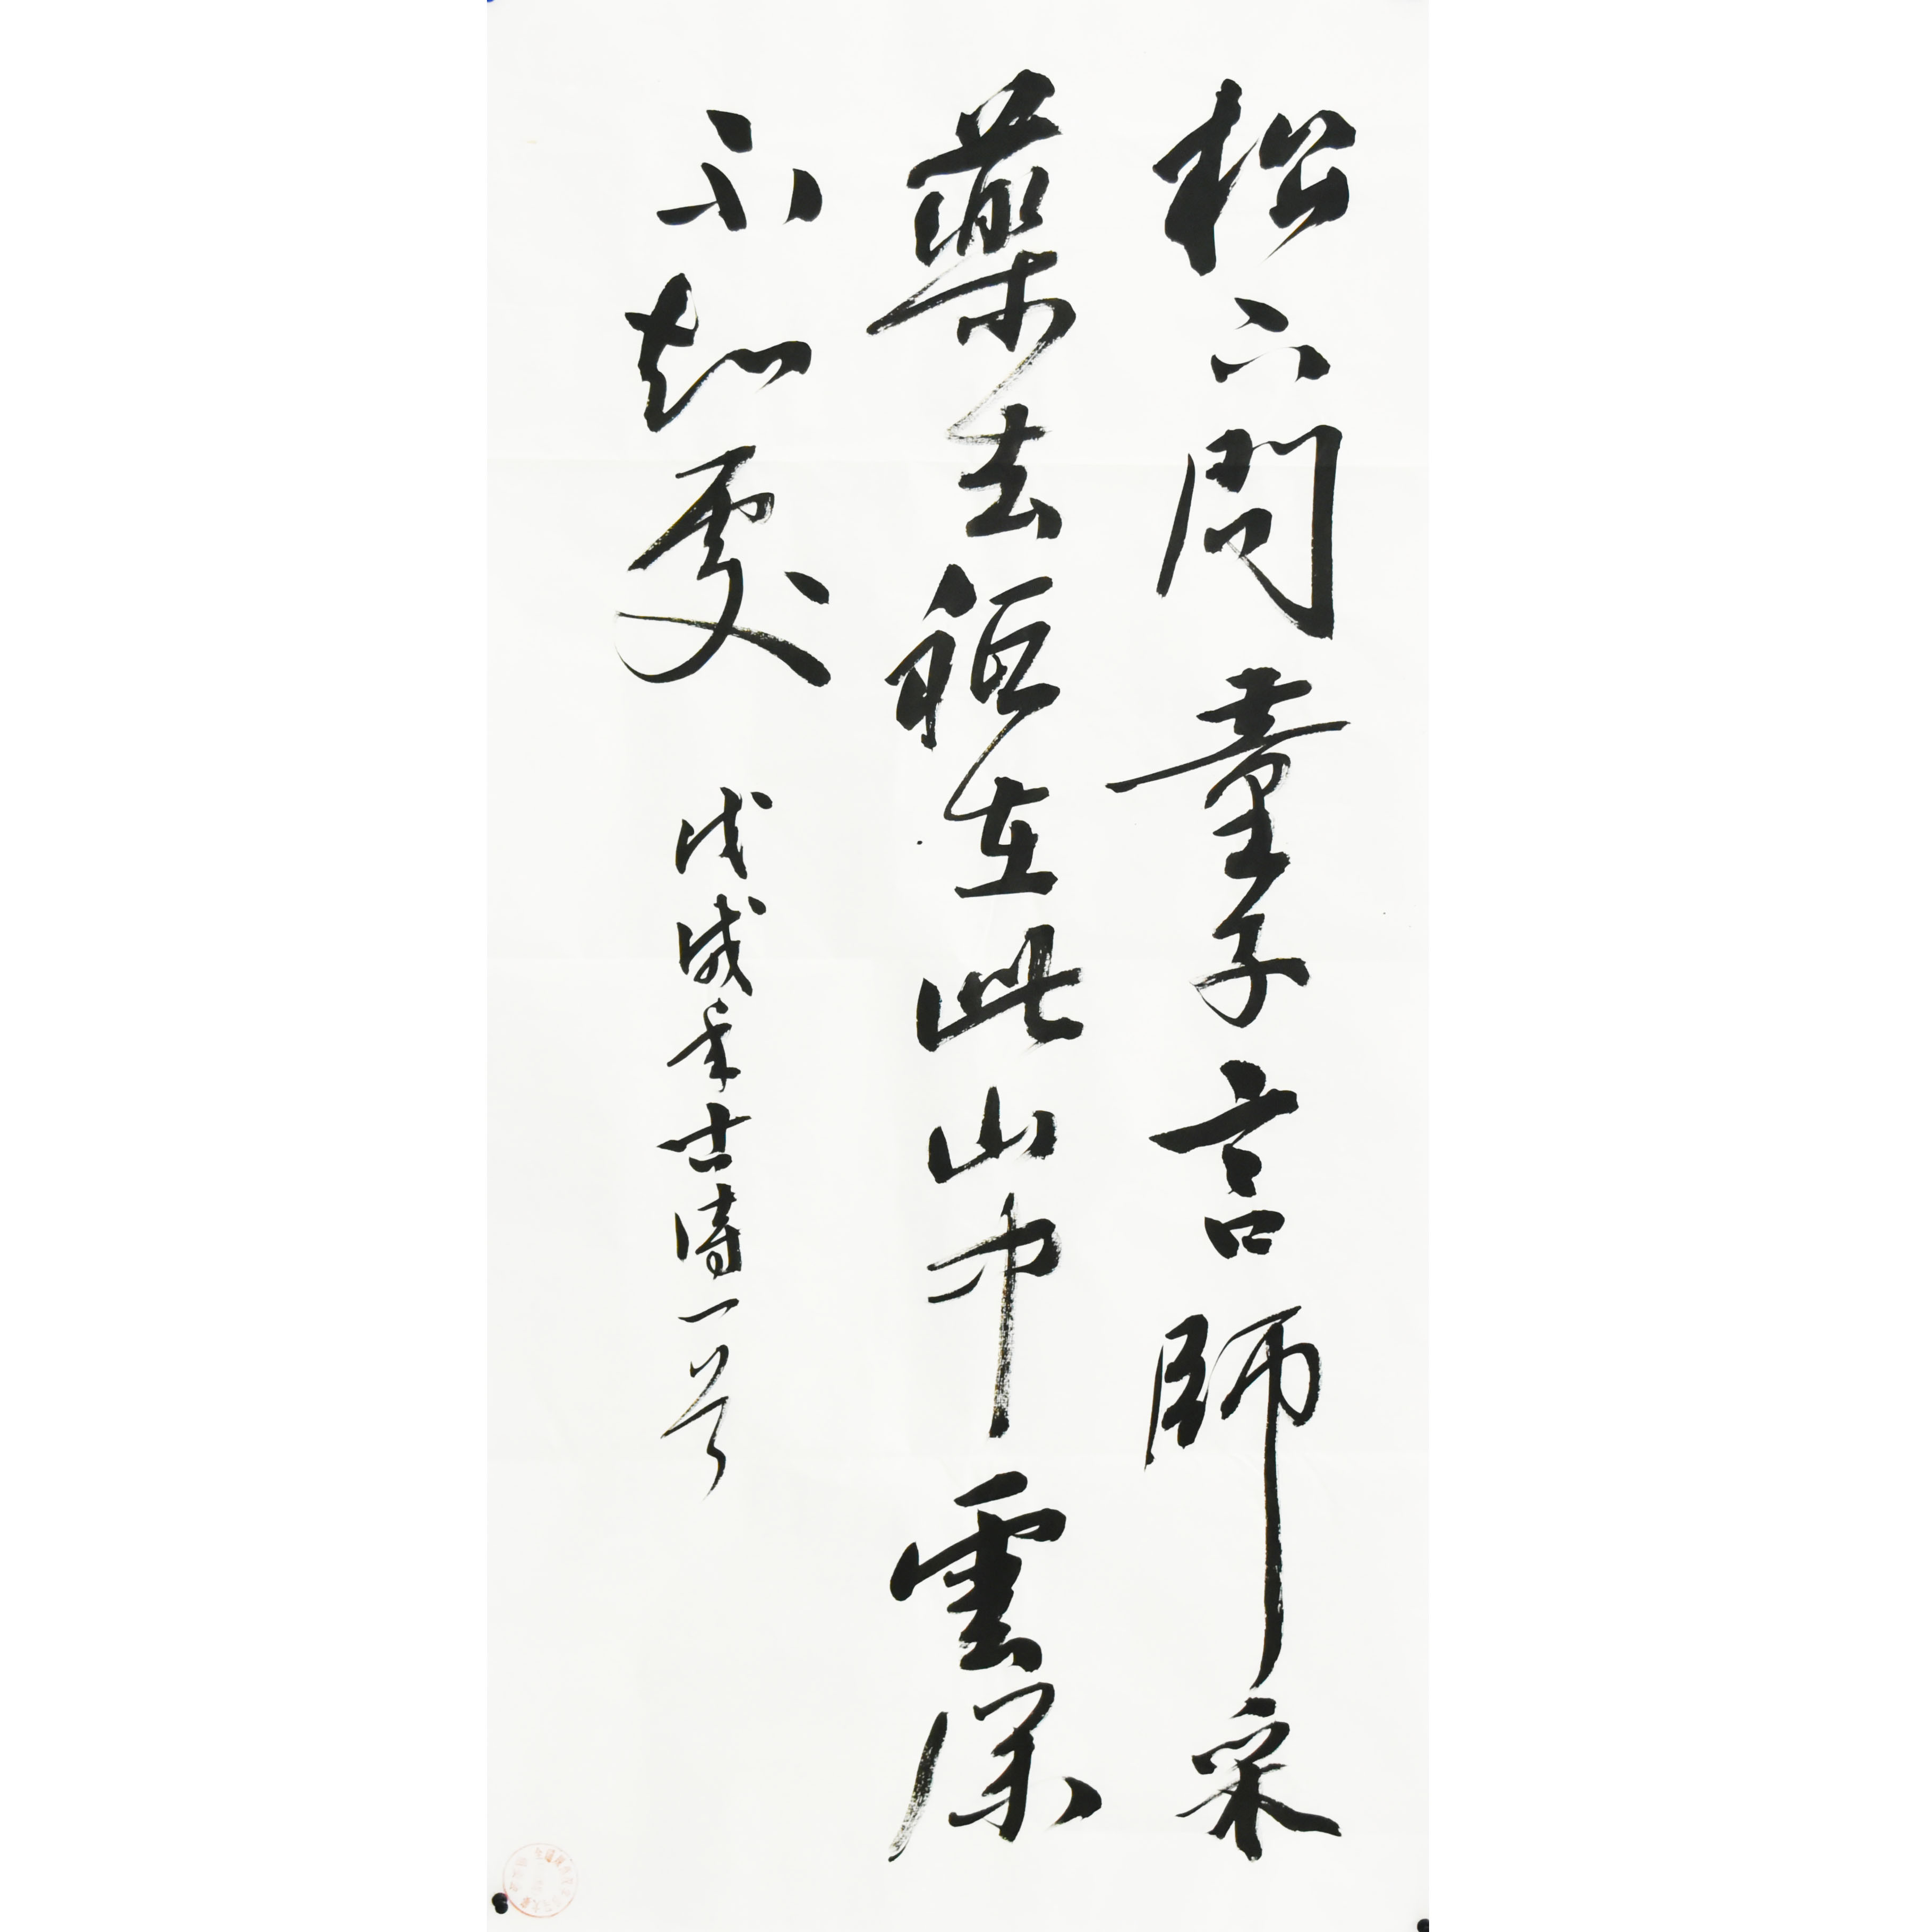 松下問童子言師采
藥去祗在此山中雲深
不知處
戊戌年古詩一首